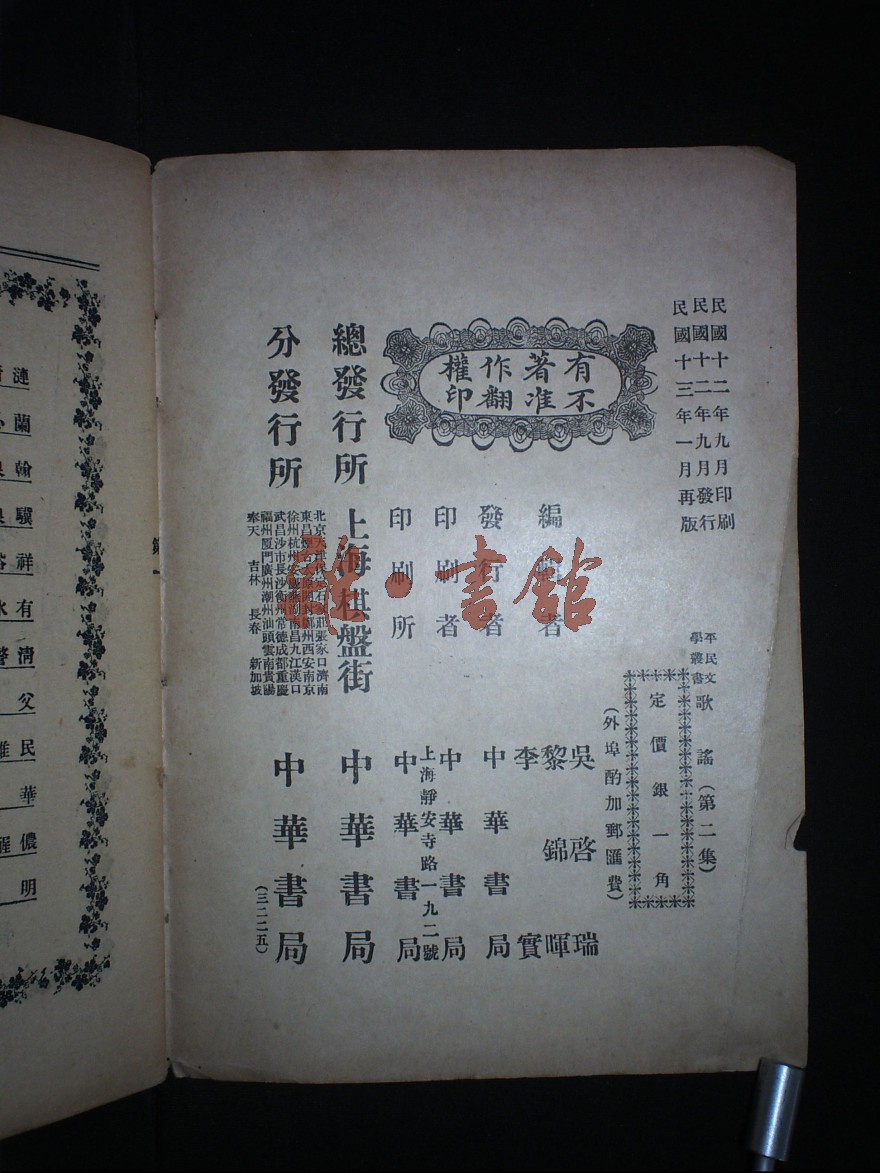 民國十二年九月印刷
民國十二年九月發行
民國十三年一月再版
平民文
學叢書
歌謠(第二集)
定價銀一角
(外埠酌加郵匯費)
有著作權
不准翻印
編 者 吳啓瑞
黎錦暉
李實
發行者 中華書局
印刷者 中華書局
印刷所 上海靜安寺路一九二號
中華書局
總發行所 上海棋盤街 中華書局
分發行所
北京 石家莊張家口濟南
東昌 鄭州西安南京
徐州杭州 南昌九江漢口
武昌沙市長沙衡州常德成都重慶
福州廈門廣州潮州汕頭雲南貴陽
奉天 吉林 長春 新加坡
中華書局
(三二二五)
書館
漣
蘭
翰
驥
祥
有
清
父
民
華
儂
明